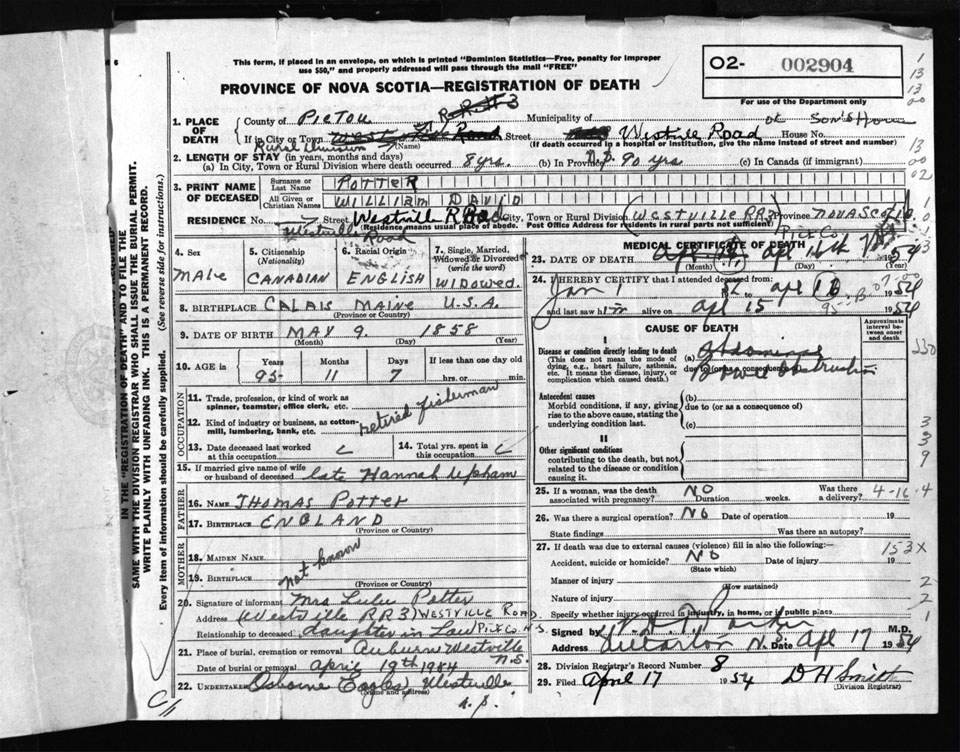 This form, if placed in an envelope, on which is printed "Dominion Statistics—Free, penalty for improper
use $50," and properly addressed will pass through the mail "FREE"
PROVINCE OF NOVA SCOTIA—REGISTRATION OF DEATH
O2- 002904
For use of the Department only
1. PLACE OF DEATH
County of Pictou R.R.#3 Municipality of or Son's Home
If in City or Town Street Westvill Road House No.
Rural Division (Name) (If death occurred in a hospital or institution, give the name instead of street and number)
2. LENGTH OF STAY (in years, months and days)
(a) In City, Town or Rural Division where death occurred 8 yrs. (b) In Province 90 yrs. (c) In Canada (if immigrant)
3. PRINT NAME OF DECEASED
Surname or Last Name POTTER
All Given or Christian Names WILLIAM DAVID
RESIDENCE No. Street Westvill Road City, Town or Rural Division (WESTVILLE RR3) Province NOVA SCOTIA
Westvill Road (Residence means usual place of abode. Post Office Address for residents in rural parts not sufficient) Pict Co
4. Sex
Male
5. Citizenship (Nationality)
CANADIAN
6. Racial Origin
ENGLISH
7. Single, Married, Widowed or Divorced (write the word)
WIDOWED.
8. BIRTHPLACE CALAIS MAINE U.S.A.
(Province or Country)
9. DATE OF BIRTH MAY 9. 1858
(Month) (Day) (Year)
10. AGE in Years Months Days If less than one day old
95 11 7 hrs. or min.
OCCUPATION
11. Trade, profession, or kind of work as spinner, teamster, office clerk, etc.
retired fisherman
12. Kind of industry or business, as cotton-mill, lumbering, bank, etc.
13. Date deceased last worked at this occupation
14. Total yrs. spent in this occupation
15. If married give name of wife or husband of deceased late Hannah Upham
FATHER
16. NAME THOMAS POTTER
17. BIRTHPLACE ENGLAND
(Province or Country)
MOTHER
18. MAIDEN NAME
not known
19. BIRTHPLACE
(Province or Country)
20. Signature of informant Mrs Lulu Potter
Address Westville RR3) WESTVILLE ROAD.
Relationship to deceased daughter in Law Pict Co. N.S.
21. Place of burial, cremation or removal Auburn Westville N.S.
Date of burial or removal April 19th 1954
22. UNDERTAKER Osborne Eagles Westville
(Name and address) N.S.
MEDICAL CERTIFICATE OF DEATH
23. DATE OF DEATH apl 16th 1954
(Month) (Day) (Year)
24. I HEREBY CERTIFY that I attended deceased from
Jan 1 to apl 16 1954
and last saw him alive on apl 15 1954
CAUSE OF DEATH
Approximate interval between onset and death
I
Disease or condition directly leading to death
(This does not mean the mode of dying, e.g., heart failure, asthenia, etc. It means the disease, injury, or complication which caused death.)
(a) Abdominal
due to (or as a consequence of) Bowel obstruction
Antecedent causes
Morbid conditions, if any, giving rise to the above cause, stating the underlying condition last.
(b)
due to (or as a consequence of)
(c)
II
Other significant conditions
contributing to the death, but not related to the disease or condition causing it.
25. If a woman, was the death associated with pregnancy? NO Duration weeks. Was there a delivery? 4-16-4
26. Was there a surgical operation? No Date of operation 19
State findings Was there an autopsy?
27. If death was due to external causes (violence) fill in also the following:— 153X
Accident, suicide or homicide? No Date of injury 19
(State which)
Manner of injury
(How sustained)
Nature of injury
Specify whether injury occurred in industry, in home, or in public place
Signed by M.D.
Address N.S. Date Apl 17 1954
28. Division Registrar's Record Number 8
29. Filed April 17 1954 D H Smith
(Division Registrar)
IN THE "REGISTRATION OF DEATH" AND TO FILE THE
SAME WITH THE DIVISION REGISTRAR WHO SHALL ISSUE THE BURIAL PERMIT.
WRITE PLAINLY WITH UNFADING INK. THIS IS A PERMANENT RECORD.
Every item of information should be carefully supplied. (See reverse side for instructions.)